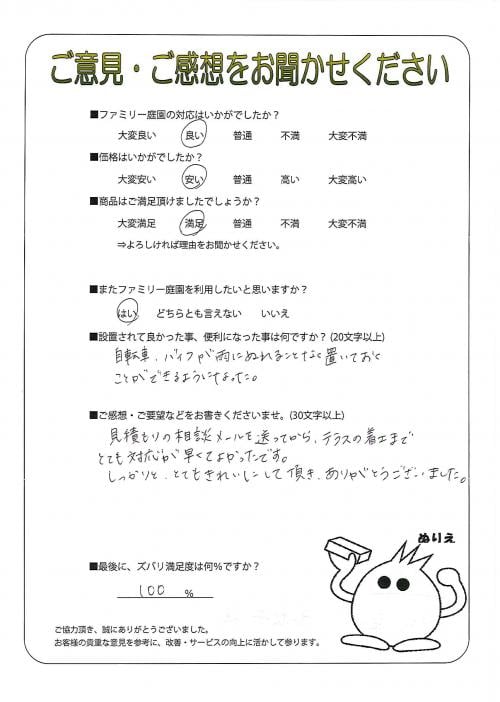 ご意見・ご感想をお聞かせください
■ファミリー庭園の対応はいかがでしたか？
大変良い 良い 普通 不満 大変不満
■価格はいかがでしたか？
大変安い 安い 普通 高い 大変高い
■商品はご満足頂けましたでしょうか？
大変満足 満足 普通 不満 大変不満
⇒よろしければ理由をお聞かせください。
■またファミリー庭園を利用したいと思いますか？
はい どちらとも言えない いいえ
■設置されて良かった事、便利になった事は何ですか？(20文字以上)
自転車、バイクが雨にぬれることなく置いておく
ことができるようになった。
■ご感想・ご要望などをお書きくださいませ。(30文字以上)
見積もりの相談メールを送ってから、テラスの着工まで
とても対応が早くてよかったです。
しっかりと、とてもきれいにして頂き、ありがとうございました。
ぬりえ
■最後に、ズバリ満足度は何%ですか？
100 %
ご協力頂き、誠にありがとうございました。
お客様の貴重な意見を参考に、改善・サービスの向上に活かして参ります。